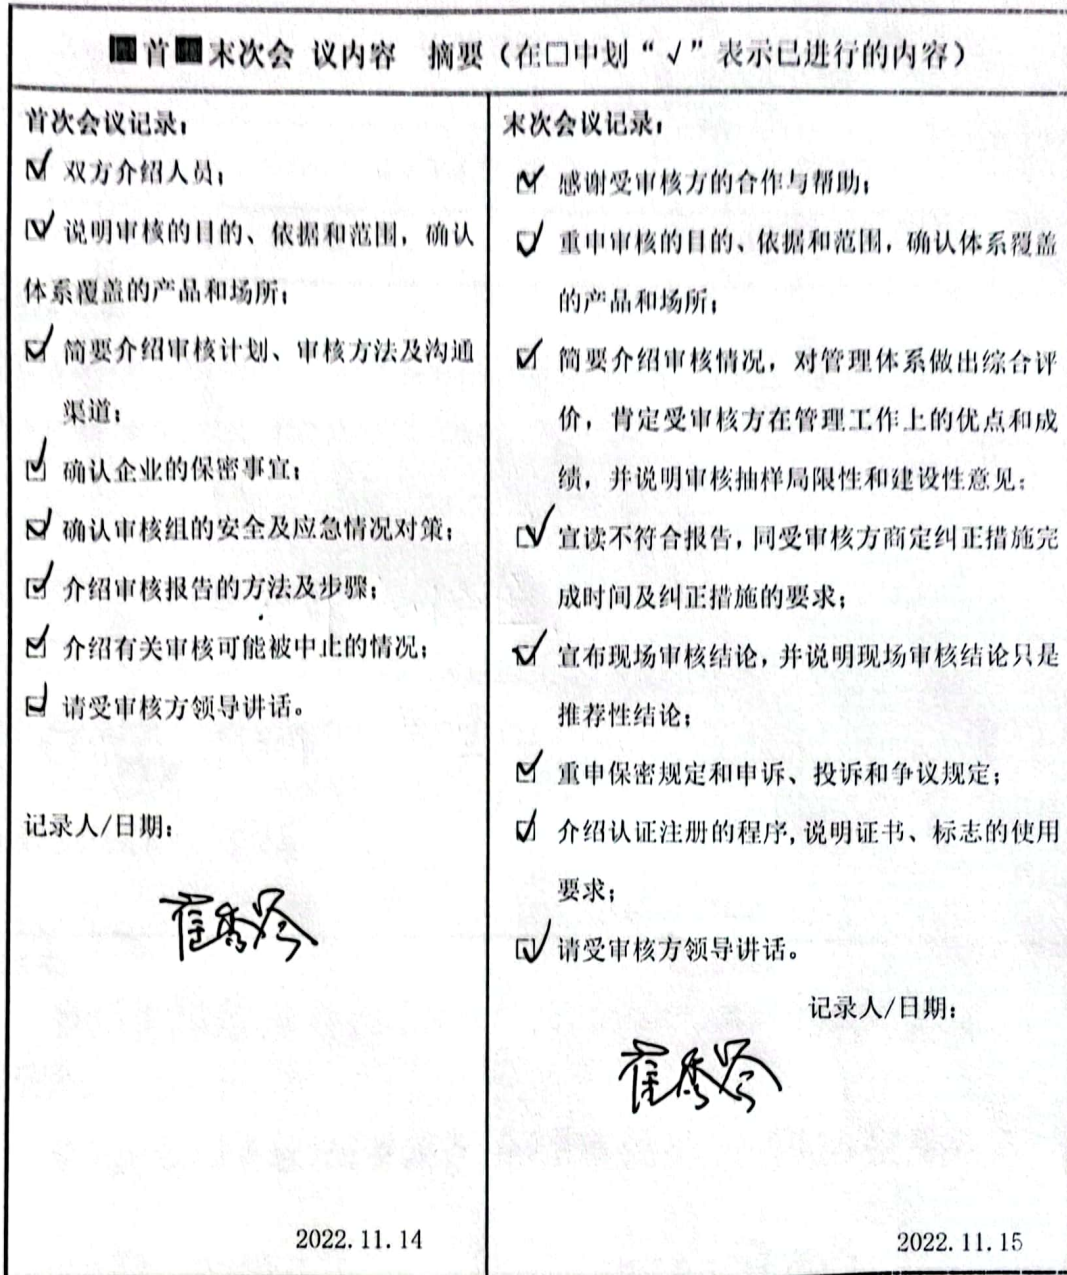 ■首■末次会 议内容 摘要（在□中划“√”表示已进行的内容）
首次会议记录：
☑ 双方介绍人员；
☑ 说明审核的目的、依据和范围，确认
体系覆盖的产品和场所；
☑ 简要介绍审核计划、审核方法及沟通
渠道；
☑ 确认企业的保密事宜；
☑ 确认审核组的安全及应急情况对策；
☑ 介绍审核报告的方法及步骤；
☑ 介绍有关审核可能被中止的情况；
☑ 请受审核方领导讲话。
记录人/日期：
2022.11.14
末次会议记录：
☑ 感谢受审核方的合作与帮助；
☑ 重申审核的目的、依据和范围，确认体系覆盖
的产品和场所；
☑ 简要介绍审核情况，对管理体系做出综合评
价，肯定受审核方在管理工作上的优点和成
绩，并说明审核抽样局限性和建设性意见；
☑ 宣读不符合报告，同受审核方商定纠正措施完
成时间及纠正措施的要求；
☑ 宣布现场审核结论，并说明现场审核结论只是
推荐性结论；
☑ 重申保密规定和申诉、投诉和争议规定；
☑ 介绍认证注册的程序,说明证书、标志的使用
要求；
☑ 请受审核方领导讲话。
记录人/日期：
2022.11.15